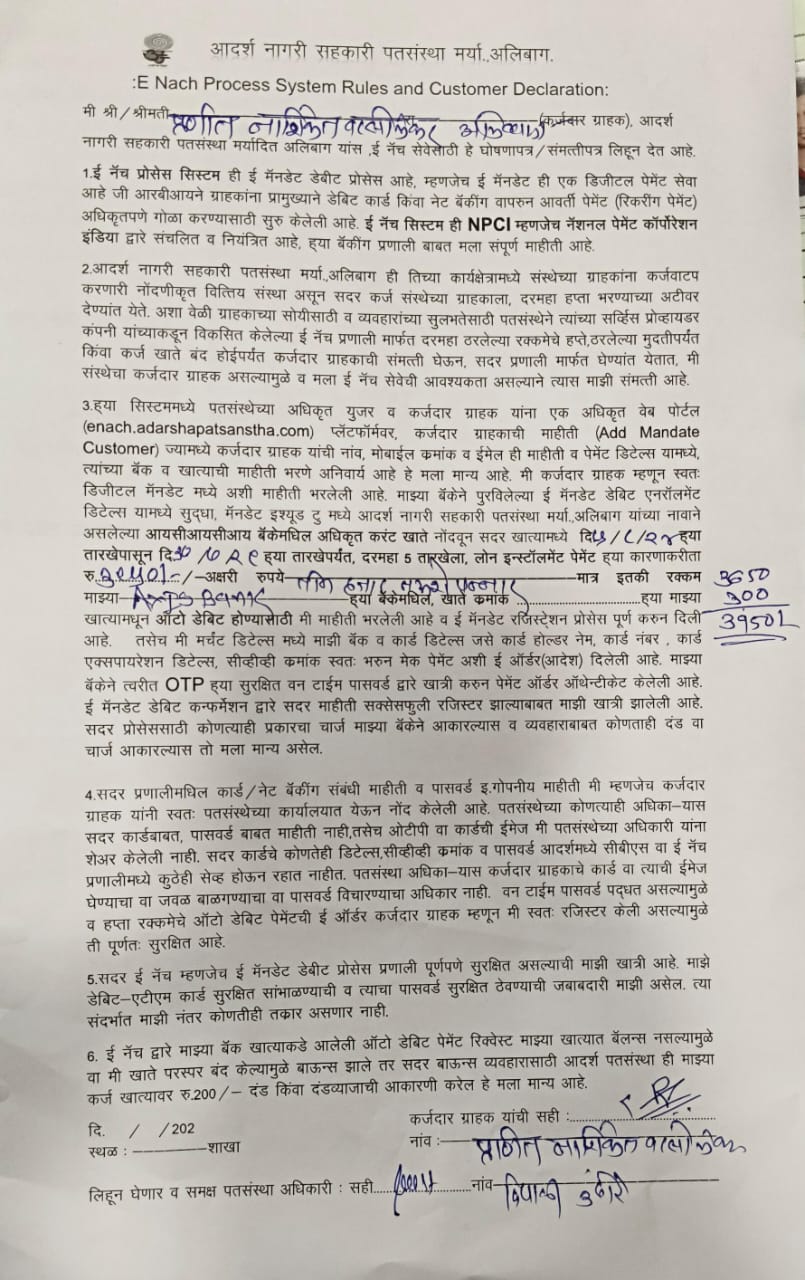 आदर्श नागरी सहकारी पतसंस्था मर्या.,अलिबाग.
:E Nach Process System Rules and Customer Declaration:
मी श्री/श्रीमती प्रणीत (कर्जदार ग्राहक), आदर्श
नागरी सहकारी पतसंस्था मर्यादित अलिबाग यांस ,ई नॅच सेवेसाठी हे घोषणापत्र/संमत्तीपत्र लिहून देत आहे.
1.ई नॅच प्रोसेस सिस्टम ही ई मॅनडेट डेबीट प्रोसेस आहे, म्हणजेच ई मॅनडेट ही एक डिजीटल पेमेंट सेवा
आहे जी आरबीआयने ग्राहकांना प्रामुख्याने डेबिट कार्ड किंवा नेट बॅकींग वापरुन आवर्ती पेमेंट (रिकरींग पेमेंट)
अधिकृतपणे गोळा करण्यासाठी सुरु केलेली आहे. ई नॅच सिस्टम ही NPCI म्हणजेच नॅशनल पेमेंट कॉर्पोरेशन
इंडिया द्वारे संचलित व नियंत्रित आहे, हया बॅकींग प्रणाली बाबत मला संपूर्ण माहीती आहे.
2.आदर्श नागरी सहकारी पतसंस्था मर्या.,अलिबाग ही तिच्या कार्यक्षेत्रामध्ये संस्थेच्या ग्राहकांना कर्जवाटप
करणारी नोंदणीकृत वित्तिय संस्था असून सदर कर्ज संस्थेच्या ग्राहकाला, दरमहा हप्ता भरण्याच्या अटीवर
देण्यांत येते. अशा वेळी ग्राहकाच्या सोयीसाठी व व्यवहारांच्या सुलभतेसाठी पतसंस्थेने त्यांच्या सर्व्हिस प्रोव्हायडर
कंपनी यांच्याकडून विकसित केलेल्या ई नॅच प्रणाली मार्फत दरमहा ठरलेल्या रक्कमेचे हप्ते,ठरलेल्या मुदतीपर्यंत
किंवा कर्ज खाते बंद होईपर्यंत कर्जदार ग्राहकाची संमत्ती घेऊन, सदर प्रणाली मार्फत घेण्यांत येतात, मी
संस्थेचा कर्जदार ग्राहक असल्यामुळे व मला ई नॅच सेवेची आवश्यकता असल्याने त्यास माझी संमत्ती आहे.
3.हया सिस्टममध्ये पतसंस्थेच्या अधिकृत युजर व कर्जदार ग्राहक यांना एक अधिकृत वेब पोर्टल
(enach.adarshapatsanstha.com) प्लॅटफॉर्मवर, कर्जदार ग्राहकाची माहीती (Add Mandate
Customer) ज्यामध्ये कर्जदार ग्राहक यांची नांव, मोबाईल क्रमांक व ईमेल ही माहीती व पेमेंट डिटेल्स यामध्ये,
त्यांच्या बॅक व खात्याची माहीती भरणे अनिवार्य आहे हे मला मान्य आहे. मी कर्जदार ग्राहक म्हणून स्वतः
डिजीटल मॅनडेट मध्ये अशी माहीती भरलेली आहे. माझ्या बॅकेने पुरविलेल्या ई मॅनडेट डेबिट एनरॉलमेंट
डिटेल्स यामध्ये सुद्धा, मॅनडेट इश्यूड टु मध्ये आदर्श नागरी सहकारी पतसंस्था मर्या.,अलिबाग यांच्या नावाने
असलेल्या आयसीआयसीआय बॅकेमधिल अधिकृत करंट खाते नोंदवून सदर खात्यामध्ये दि हया
तारखेपासून दि हया तारखेपर्यंत, दरमहा 5 तारखेला, लोन इन्स्टॉलमेंट पेमेंट हया कारणाकरीता
रु. /-अक्षरी रुपये तीन हजार नऊशे पन्नास मात्र इतकी रक्कम
3650
माझ्या Axis Bank हया बॅकेमधिल, खाते क्रमांक हया माझ्या
300
खात्यामधून ऑटो डेबिट होण्यासाठी मी माहीती भरलेली आहे व ई मॅनडेट रजिस्ट्रेशन प्रोसेस पूर्ण करुन दिली
3950/-
आहे. तसेच मी मर्चंट डिटेल्स मध्ये माझी बँक व कार्ड डिटेल्स जसे कार्ड होल्डर नेम, कार्ड नंबर , कार्ड
एक्सपायरेशन डिटेल्स, सीव्हीव्ही क्रमांक स्वतः भरुन मेक पेमेंट अशी ई ऑर्डर(आदेश) दिलेली आहे. माझ्या
बॅकेने त्वरीत OTP हया सुरक्षित वन टाईम पासवर्ड द्वारे खात्री करुन पेमेंट ऑर्डर ऑथेन्टीकेट केलेली आहे.
ई मॅनडेट डेबिट कन्फर्मेशन द्वारे सदर माहीती सक्सेसफुली रजिस्टर झाल्याबाबत माझी खात्री झालेली आहे.
सदर प्रोसेससाठी कोणत्याही प्रकारचा चार्ज माझ्या बॅकेने आकारल्यास व व्यवहाराबाबत कोणताही दंड वा
चार्ज आकारल्यास तो मला मान्य असेल.
4.सदर प्रणालीमधिल कार्ड/नेट बॅकींग संबंधी माहीती व पासवर्ड इ.गोपनीय माहीती मी म्हणजेच कर्जदार
ग्राहक यांनी स्वतः पतसंस्थेच्या कार्यालयात येऊन नोंद केलेली आहे. पतसंस्थेच्या कोणत्याही अधिका-यास
सदर कार्डबाबत, पासवर्ड बाबत माहीती नाही,तसेच ओटीपी वा कार्डची ईमेज मी पतसंस्थेच्या अधिकारी यांना
शेअर केलेली नाही. सदर कार्डचे कोणतेही डिटेल्स,सीव्हीव्ही क्रमांक व पासवर्ड आदर्शमध्ये सीबीएस वा ई नॅच
प्रणालीमध्ये कुठेही सेव्ह होऊन रहात नाहीत. पतसंस्था अधिका-यास कर्जदार ग्राहकाचे कार्ड वा त्याची ईमेज
घेण्याचा वा जवळ बाळगण्याचा वा पासवर्ड विचारण्याचा अधिकार नाही. वन टाईम पासवर्ड पद्धत असल्यामुळे
व हप्ता रक्कमेचे ऑटो डेबिट पेमेंटची ई ऑर्डर कर्जदार ग्राहक म्हणून मी स्वतः रजिस्टर केली असल्यामुळे
ती पूर्णतः सुरक्षित आहे.
5.सदर ई नॅच म्हणजेच ई मॅनडेट डेबीट प्रोसेस प्रणाली पूर्णपणे सुरक्षित असल्याची माझी खात्री आहे. माझे
डेबिट-एटीएम कार्ड सुरक्षित सांभाळण्याची व त्याचा पासवर्ड सुरक्षित ठेवण्याची जबाबदारी माझी असेल. त्या
संदर्भात माझी नंतर कोणतीही तक्रार असणार नाही.
6. ई नॅच द्वारे माझ्या बॅक खात्याकडे आलेली ऑटो डेबिट पेमेंट रिक्वेस्ट माझ्या खात्यात बॅलन्स नसल्यामुळे
वा मी खाते परस्पर बंद केल्यामुळे बाऊन्स झाले तर सदर बाऊन्स व्यवहारासाठी आदर्श पतसंस्था ही माझ्या
कर्ज खात्यावर रु.200/- दंड किंवा दंडव्याजाची आकारणी करेल हे मला मान्य आहे.
कर्जदार ग्राहक यांची सही :
दि. / /202
नांव :- प्रणीत
स्थळ : शाखा
लिहून घेणार व समक्ष पतसंस्था अधिकारी : सही नांव दिपाली